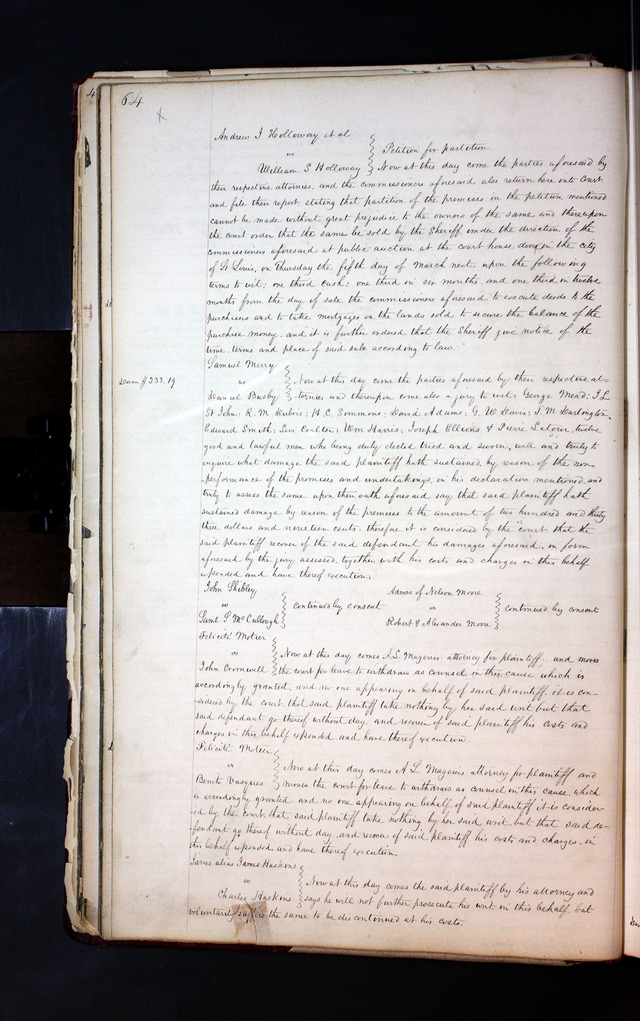 64
Andrew J Holloway et al
vs
Petition for partition
William S Holloway
Now at this day come the parties aforesaid by
their respective attornies, and the commissioners aforesaid also return here into Court
and file their report stating that partition of the premises in the petition mentioned
cannot be made without great prejudice to the owners of the same and thereupon
the court order that the same be sold by the Sheriff under the direction of the
commissioners aforesaid at public auction at the court house door in the city
of St Louis, on Thursday the fifth day of March next, upon the following
terms to wit; one third cash; one third in six months and one third in twelve
months from the day of sale. the commissioners aforesaid to execute deeds to the
purchasers and to take mortgages on the lands sold to secure the balance of the
purchase money, and it is further ordered that the Sheriff give notice of the
time, terms and place of said sale according to law.
Samuel Merry
vs
Dam $233.19
Now at this day come the parties aforesaid by their respective at-
Daniel Busby
tornies and thereupon come also a jury to wit: George Mead; J. L.
St John; R. M. Dubois; H. C. Simmons; David Adams; G. W. Davis; T. M. Darlington
Edward Smith; Wm Harris; Joseph & Pierre twelve
good and lawful men who being duly elected tried and sworn, well and truly to
enquire what damage the said plaintiff hath sustained, by reason of the non-
performance of the promises and undertakings, in his declaration mentioned, and
truly to assess the same upon their oath aforesaid say that said plaintiff hath
sustained damage by reason of the premises to the amount of two hundred and thirty
three dollars and nineteen cents. therefore it is considered by the court that the
said plaintiff recover of the said defendant his damages aforesaid, in form
aforesaid by the jury assessed, together with his costs and charges in this behalf
expended and have thereof execution.
John Shibley
vs
continued by consent
Saml G McCullough
Admrs of Nelson Moore
vs
continued by consent
Robert & Alexander Moore
Felicité Motier
vs
Now at this day comes A. L. Magenis attorney for plaintiff and moves
John Cromwell
the court for leave to withdraw as counsel in this cause which is
accordingly granted, and no one appearing in behalf of said plaintiff, it is con-
sidered by the court that said plaintiff take nothing by her said writ but that
said defendant go thereof without day, and recover of said plaintiff his costs and
charges in this behalf expended and have thereof execution.
Felicité Motier
vs
Now at this day comes A L Magenis attorney for plaintiff and
Benito Vasques
moves the court for leave to withdraw as counsel in this cause which
is accordingly granted and no one appearing on behalf of said plaintiff it is consider-
ed by the court, that said plaintiff take nothing by her said writ, but that said de-
fendant go thereof without day and recover of said plaintiff his costs and charges, in
this behalf expended and have thereof execution.
alias James Huskins
vs
Now at this day comes the said plaintiff by his attorney and
Charles Huskins
says he will not further prosecute his writ in this behalf, but
voluntarily suffers the same to be discontinued at his costs.